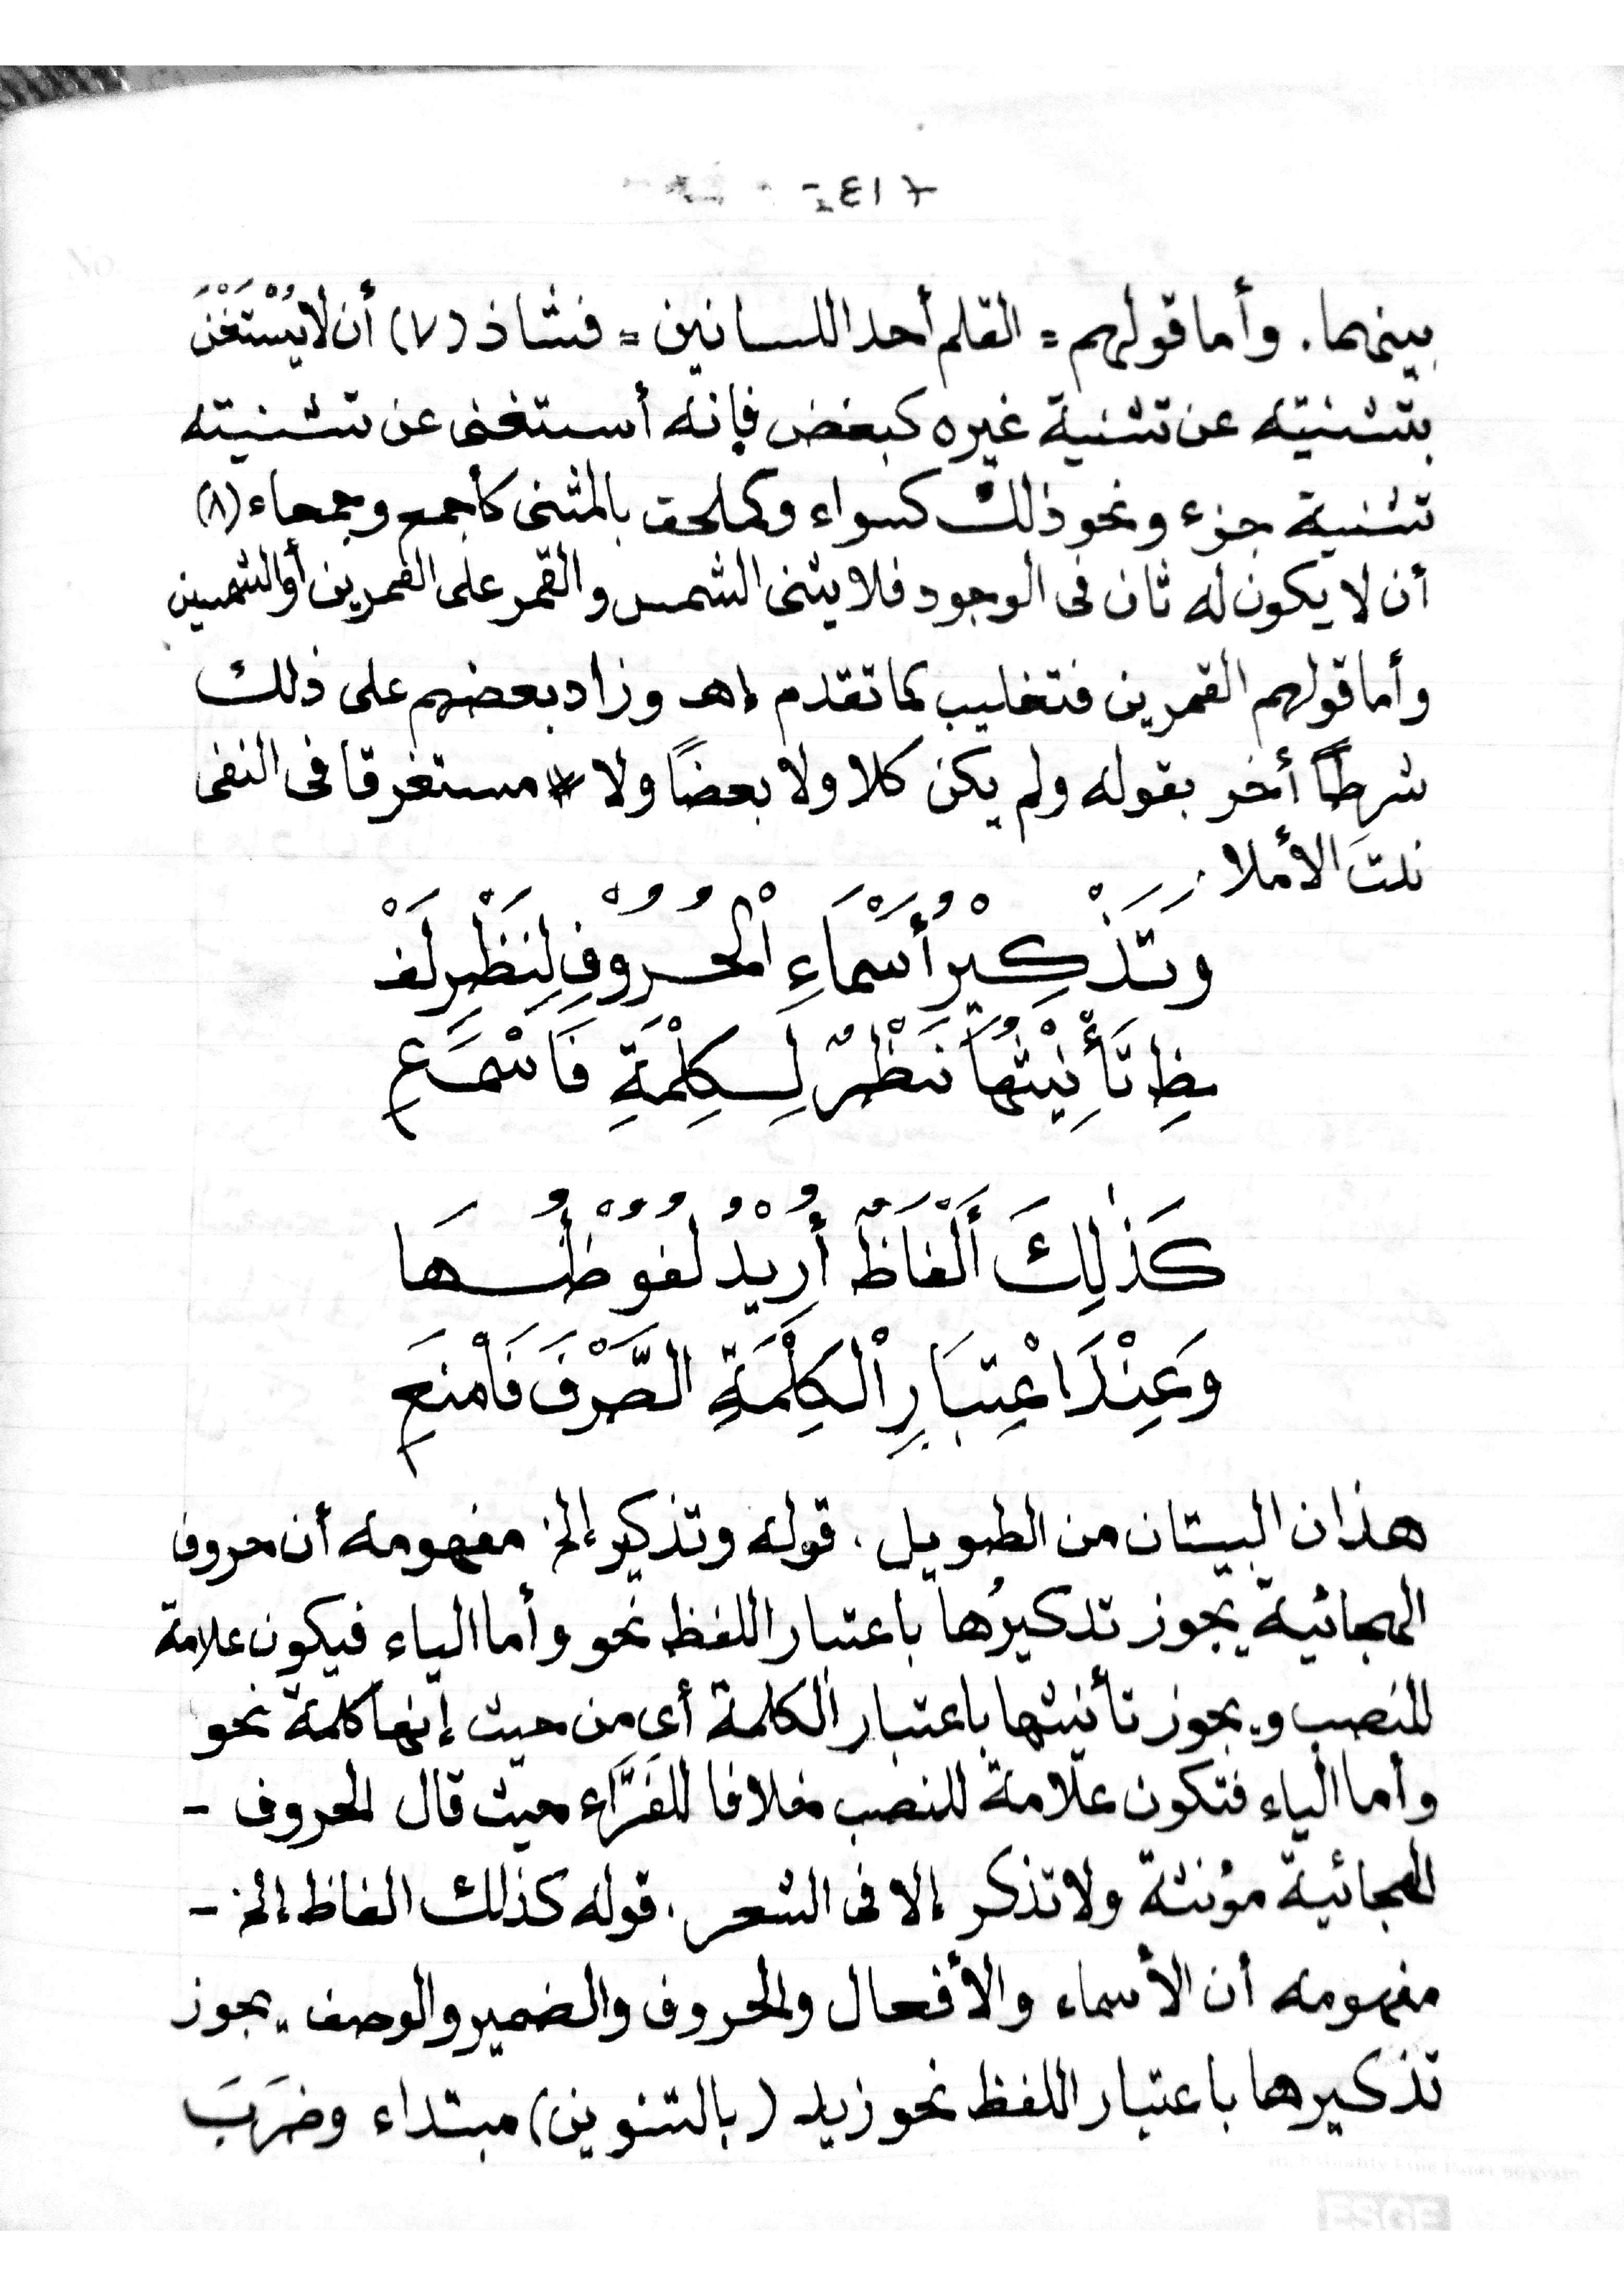 + 13 -
بينهما. وأما قولهم = القلم أحد اللسانين = فشاذ (٧) أن لا يُسْتَغْنَ
بتثنيته عن تثنية غيره كبعض فإنه أستغنى عن تثنيته
تثنية جزء ونحو ذلك كسواء وكملحق بالمثنى كأجمع وجمعاء (٨)
أن لا يكون له ثان فى الوجود فلا يثنى الشمس والقمر على القمرين أو الشمسين
وأما قولهم القمرين فتغليب كما تقدم إهـ وزاد بعضهم على ذلك
شرطًا أخر بقوله ولم يكن كلا ولا بعضًا ولا * مستغرقا فى النفى
نلتَ الأملا.
وَتَذْكِيْرُ أَسْمَاءِ الْحُرُوْفِ لِنَظْرِ لَفْـ
ـظِ تَأْنِيْثُهَا نَظْرٌ لِكِلْمَةِ فَاسْمَعِ
كَذٰلِكَ أَلْفَاظٌ أُرِيْدُ لُفُوْظُهَا
وَعِنْدَ اعْتِبَارِ الْكِلْمَةِ الصَّرْفَ فَامْنَعِ
هذان البيتان من الطويل. قوله وتذكير إلخ مفهومه أن حروف
الهجائية يجوز تذكيرُها باعتبار اللفظ نحو وأما الياء فيكون علامة
للنصب ويجوز تأنيثها باعتبار الكلمة أى من حيث إنها كلمة نحو
وأما الياء فتكون علامة للنصب خلافا للفَرَّاء حيث قال الحروف -
الهجائية مؤنثة ولا تذكر إلا فى الشعر. قوله كذلك الفاظ إلخ -
مفهومه أن الأسماء والأفعال والحروف والضمير والوصف يجوز
تذكيرها باعتبار اللفظ نحو زيد (بالتنوين) مبتداء وضَرَبَ
ESGE